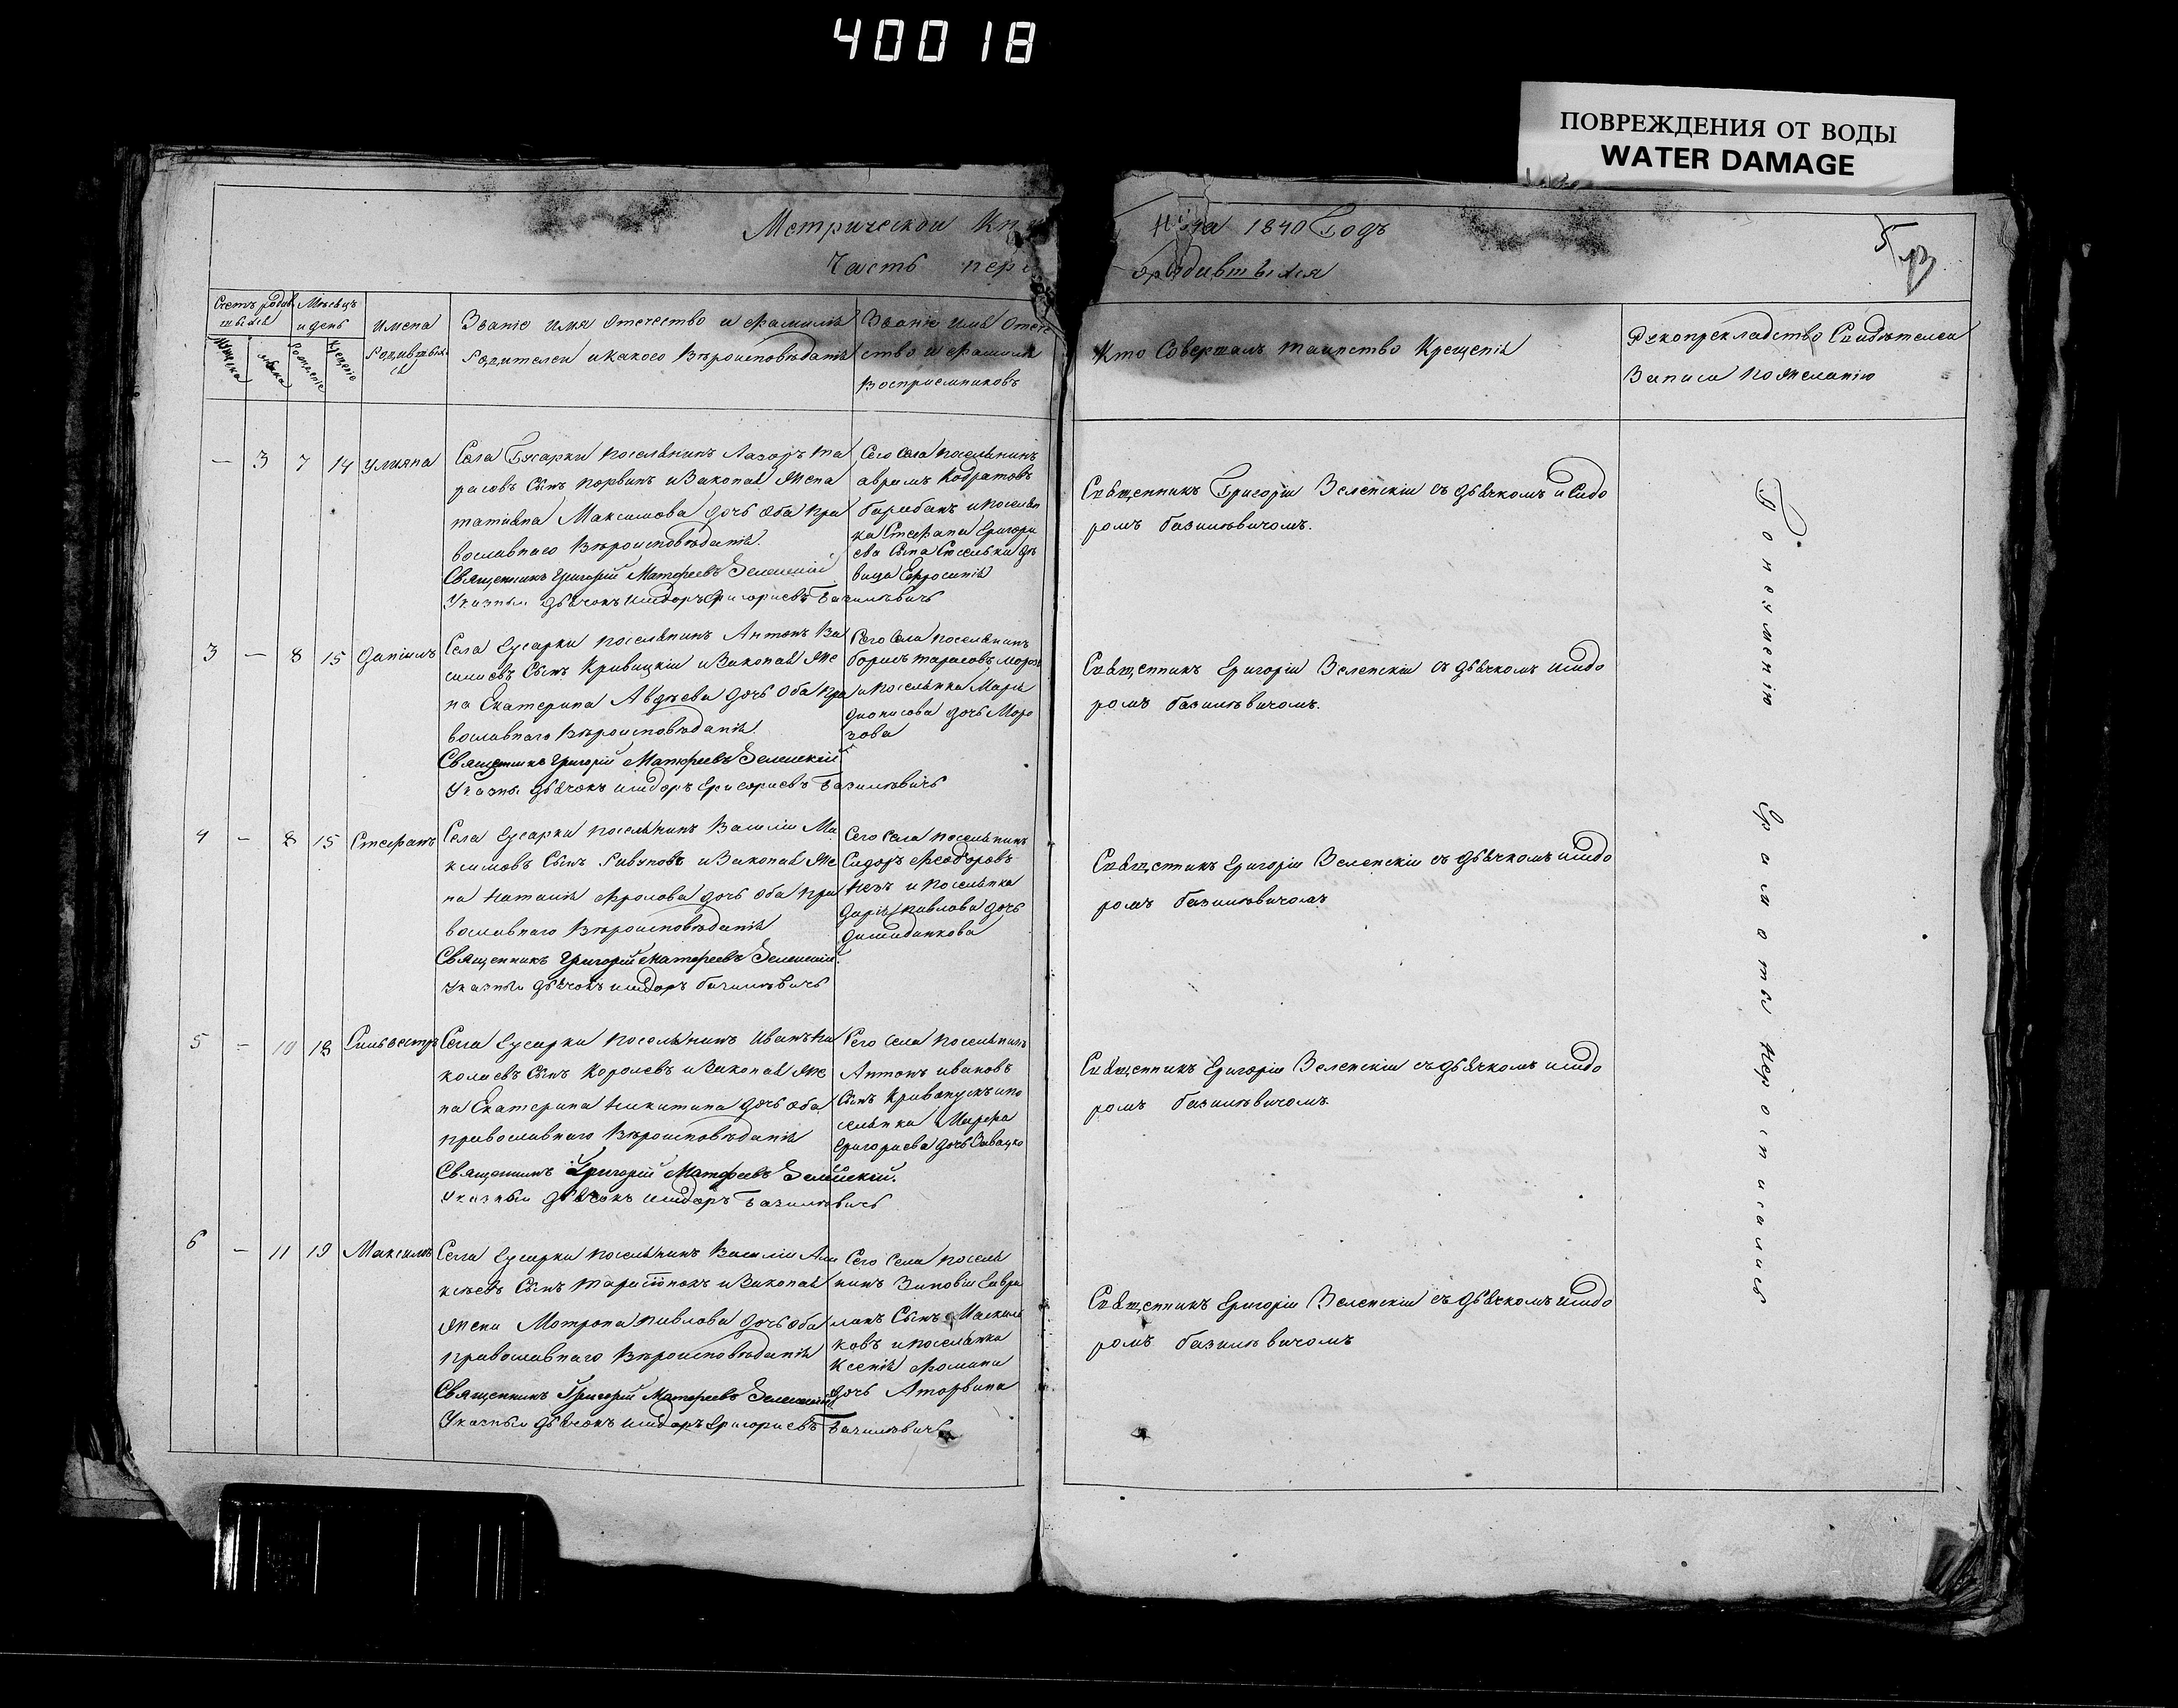 40018
ПОВРЕЖДЕНИЯ ОТ ВОДЫ
WATER DAMAGE
Метрической Кни
на 1840 Годъ
Часть пер
о родившыхся
Счетъ родив
шыхся
Мѣсецъ
и день
Имена
Родившых
ся
Званіе имя Отечество и Фамилія
Родителеи и какого Вѣроисповѣданія
Званіе имя Отече
ство и Фамилія
Восприемниковъ
Кто Совершалъ таинство Крещенія
Рукоприкладство Свидѣтелеи
Записи по желанію
3 7 14 Улияна
Села Гусарки поселянинъ Лазорь Та
расовъ Сынъ Корвинъ и Законая Жена
татияна Максимова дочь Оба Пра
вославнаго Вѣроисповѣданія.
Священникъ Григорій Матфеевъ Зеленскій
Указныи дьячокъ Исидоръ Григориевъ Базилевичь
Сего Села поселянинъ
аврамъ Кодратовъ
барабанъ и поселян
ка Стефана Григори
ева Сына
вица Ефросинія
Священникъ Григоріи Зеленскіи съ дьячкомъ Исидо
ромъ базилевичомъ.
3 — 8 15 Даніилъ
Села Гусарки поселянинъ Антонъ Ва
силиевъ Сынъ Кривицкіи и Законая Же
на Екатерина Авдѣева дочь Оба Пра
вославнаго Вѣроисповѣданія.
Священникъ Григорій Матфеевъ Зеленскій
Указны дьячокъ Исидоръ Григориевъ Базилевичь
Сего Села поселянинъ
борисъ тарасовъ морозъ
и поселянка Марія
дионисова дочь Моро
зова
Священникъ Григоріи Зеленскіи съ дьячкомъ Исидо
ромъ базилевичомъ.
4 — 8 15 Стефанъ
Села Гусарки поселянинъ Василіи Ма
ксимовъ Сынъ Ривяковъ и Законая Же
на Наталія Фролова дочь Оба Пра
вославнаго Вѣроисповѣданія
Священникъ Григорій Матфеевъ Зеленскій.
Указныи дьячокъ Исидоръ базилевичь
Сего Села поселянинъ
Сидоръ Феодоровъ
и поселянка
Дарія павлова дочь
Священникъ Григоріи Зеленскіи съ дьячкомъ Исидо
ромъ базилевичомъ
5 — 10 18 Сильвестръ
Села Гусарки поселянинъ Иванъ Ни
колаевъ Сынъ Королевъ и Законая Же
на Екатерина Никитина дочь Оба
православнаго Вѣроисповѣданія
Священникъ Григорій Матфеевъ Зеленскій.
Указныи дьячокъ Исидоръ Базилевичь
Сего Села поселянинъ
Антонъ ивановъ
Сынъ Кривопускъ и по
селянка Марфа
Григориева дочь
Священникъ Григоріи Зеленскіи съ дьячкомъ Исидо
ромъ базилевичомъ.
6 — 11 19 Максимъ
Села Гусарки поселянинъ Василіи Али
ксѣевъ Сынъ и Законая
Жена Мотрона павлова дочь Оба
православнаго Вѣроисповѣданія
Священникъ Григорій Матфеевъ Зеленскій
Указныи дьячокъ Исидоръ Григориевъ Базилевичь
Сего Села посели
нинъ Зиновіи Гаври
ловъ Сынъ
ковъ и поселянка
Ксенія Фомина
дочь
Священникъ Григоріи Зеленскіи съ дьячкомъ Исидо
ромъ базилевичомъ
По неуменію Грамоты Неросписались